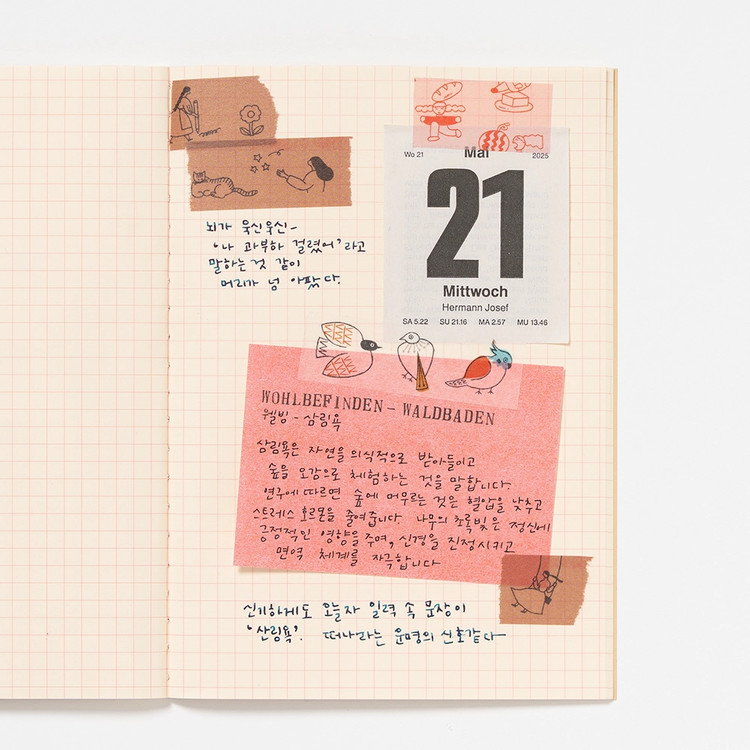 Wo 21 Mai 2025
21
Mittwoch
Hermann Josef
SA 5.22 SU 21.16 MA 2.57 MU 13.46
뇌가 욱신욱신-
'나 과부하 걸렸어'라고
말하는 것 같이
머리가 넘 아팠다.
WOHLBEFINDEN - WALDBADEN
웰빙 - 삼림욕
삼림욕은 자연을 의식적으로 받아들이고
숲을 오감으로 체험하는 것을 말합니다.
연구에 따르면 숲에 머무르는 것은 혈압을 낮추고
스트레스 호르몬을 줄여줍니다. 나무의 초록빛은 정신에
긍정적인 영향을 주며, 신경을 진정시키고
면역 체계를 자극합니다
신기하게도 오늘자 일력 속 문장이
'산림욕'. 떠나라는 운명의 신호같다